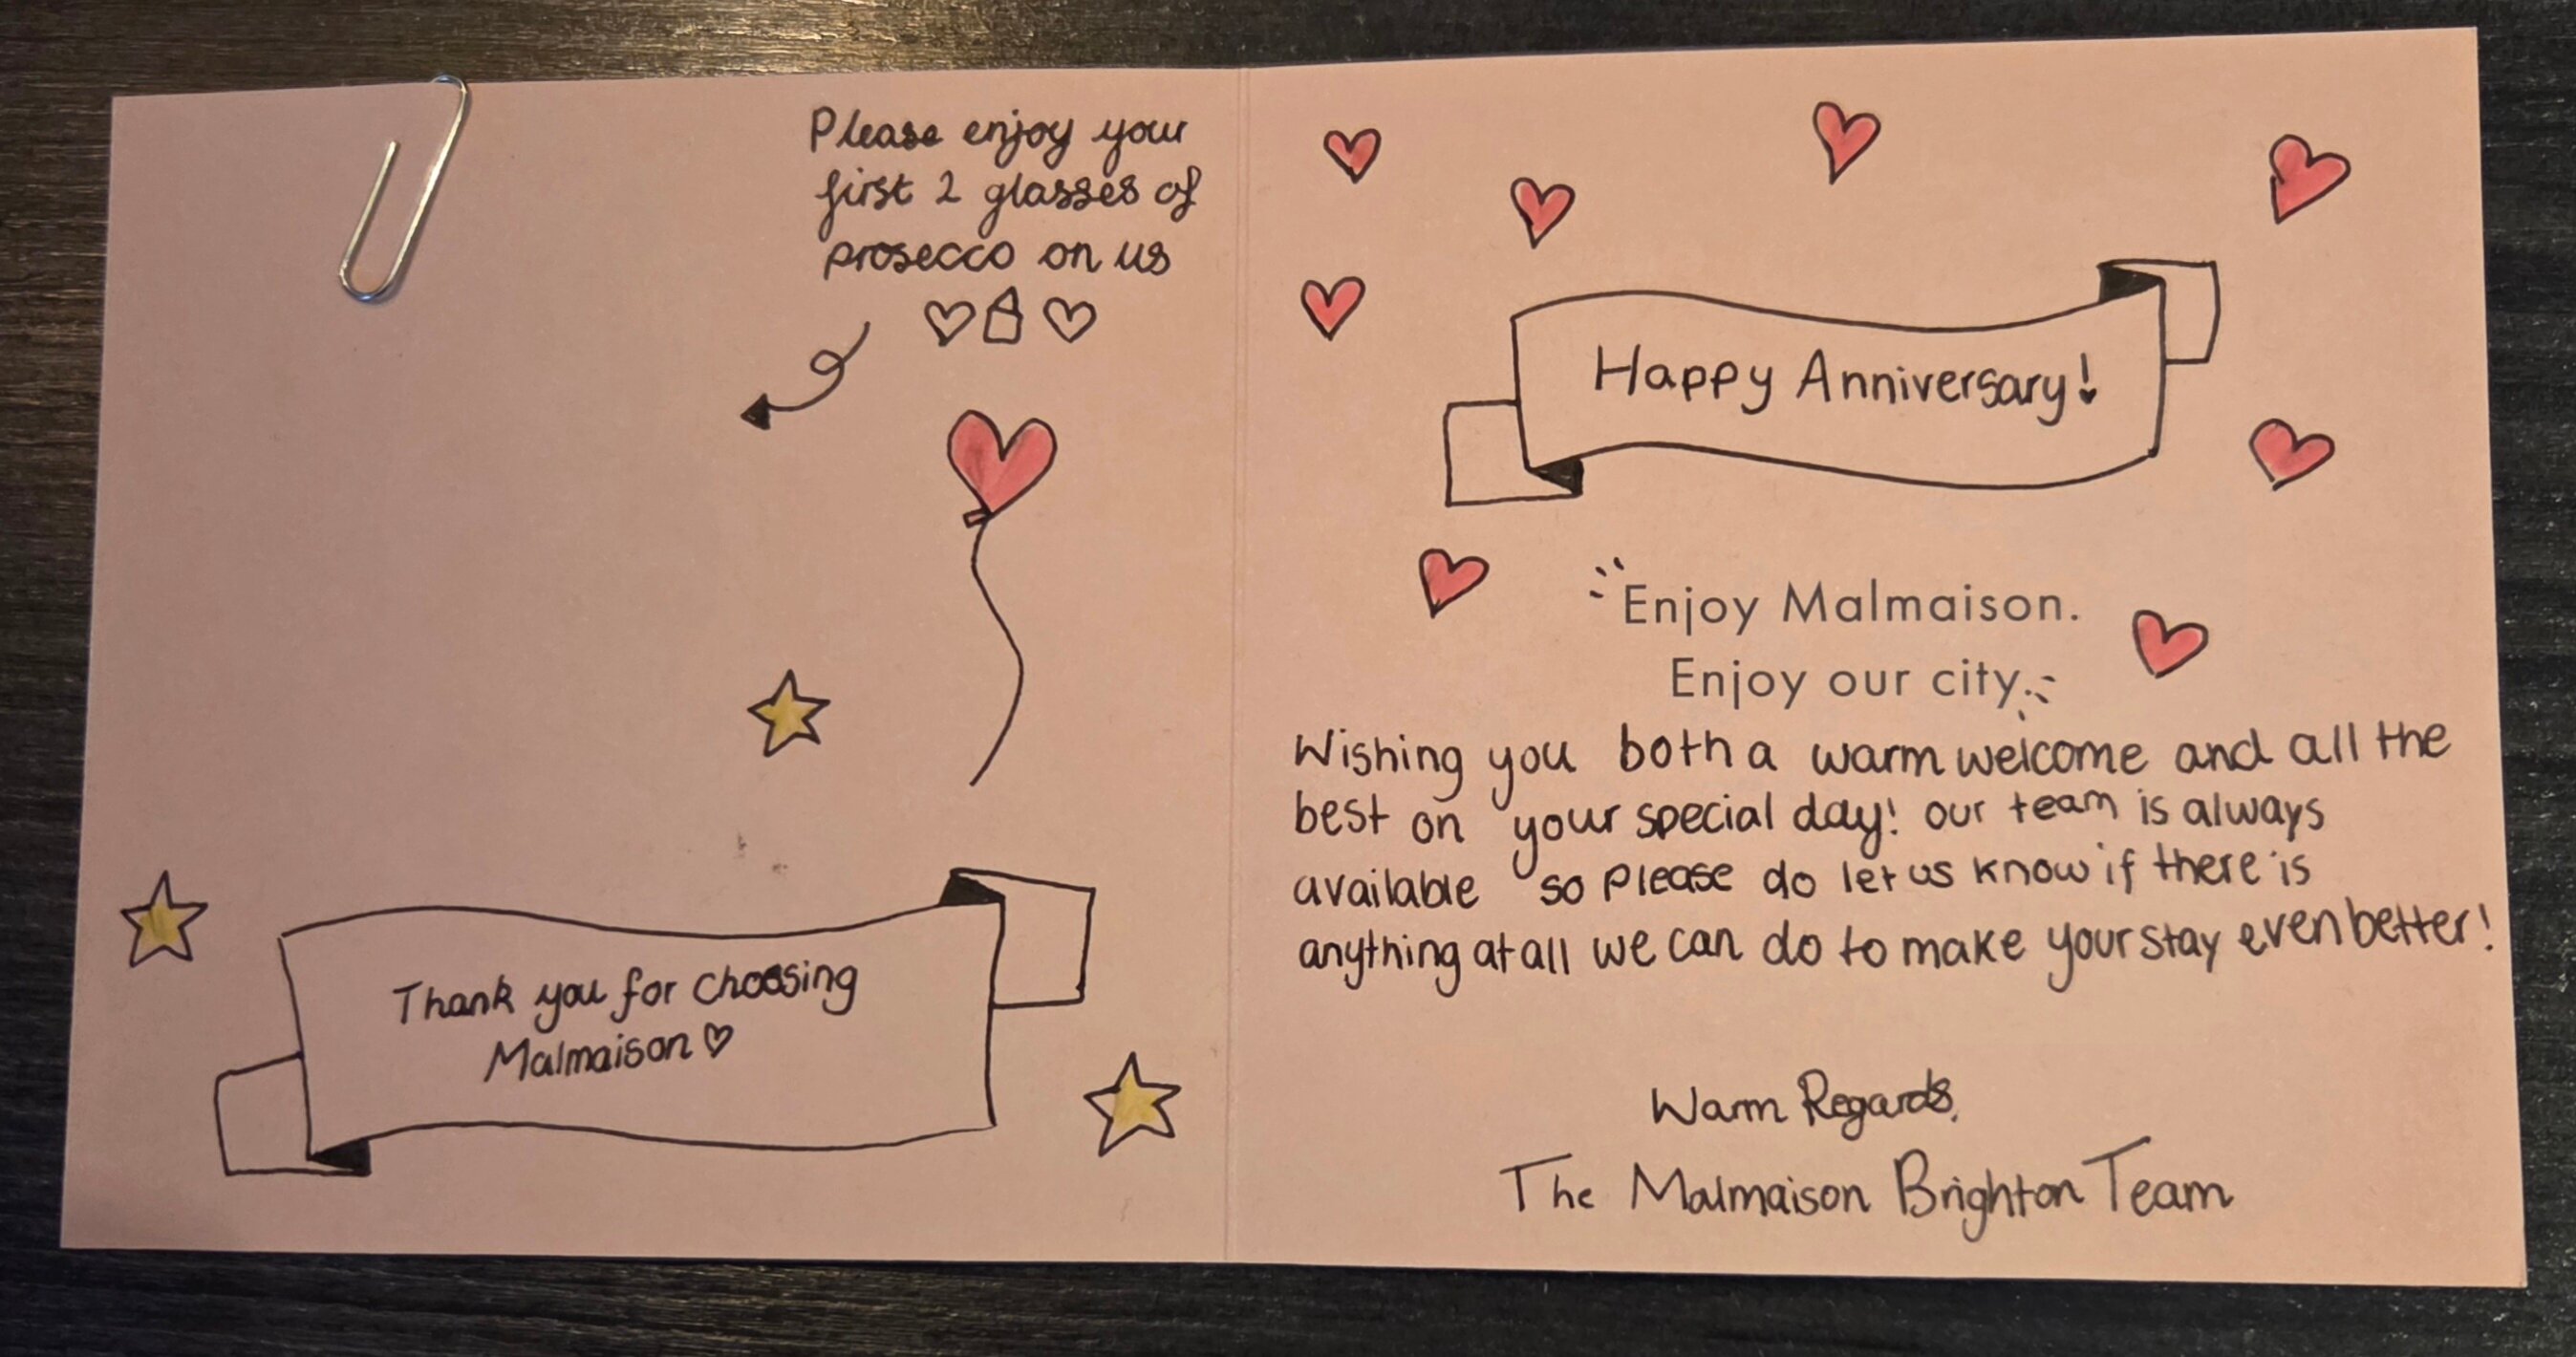 Please enjoy your
first 2 glasses of
prosecco on us
Thank you for choosing
Malmaison
Happy Anniversary!
Enjoy Malmaison.
Enjoy our city.
Wishing you both a warm welcome and all the
best on your special day! our team is always
available so please do let us know if there is
anything at all we can do to make your stay even better!
Warm Regards,
The Malmaison Brighton Team